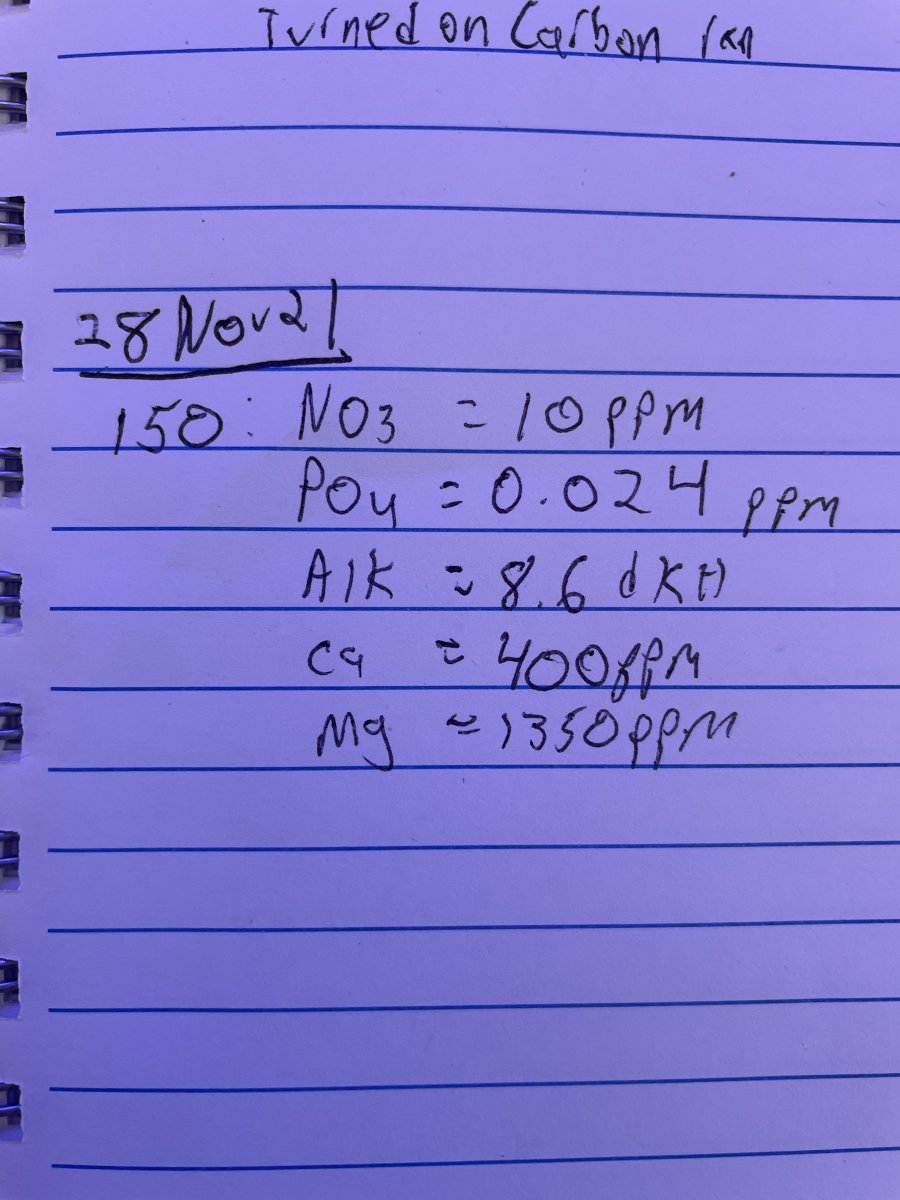 Turned on Carbon
28 Nov 21
150: NO3 = 10 ppm
PO4 = 0.024 ppm
Alk = 8.6 dKH
Ca = 400ppm
Mg = 1350ppm